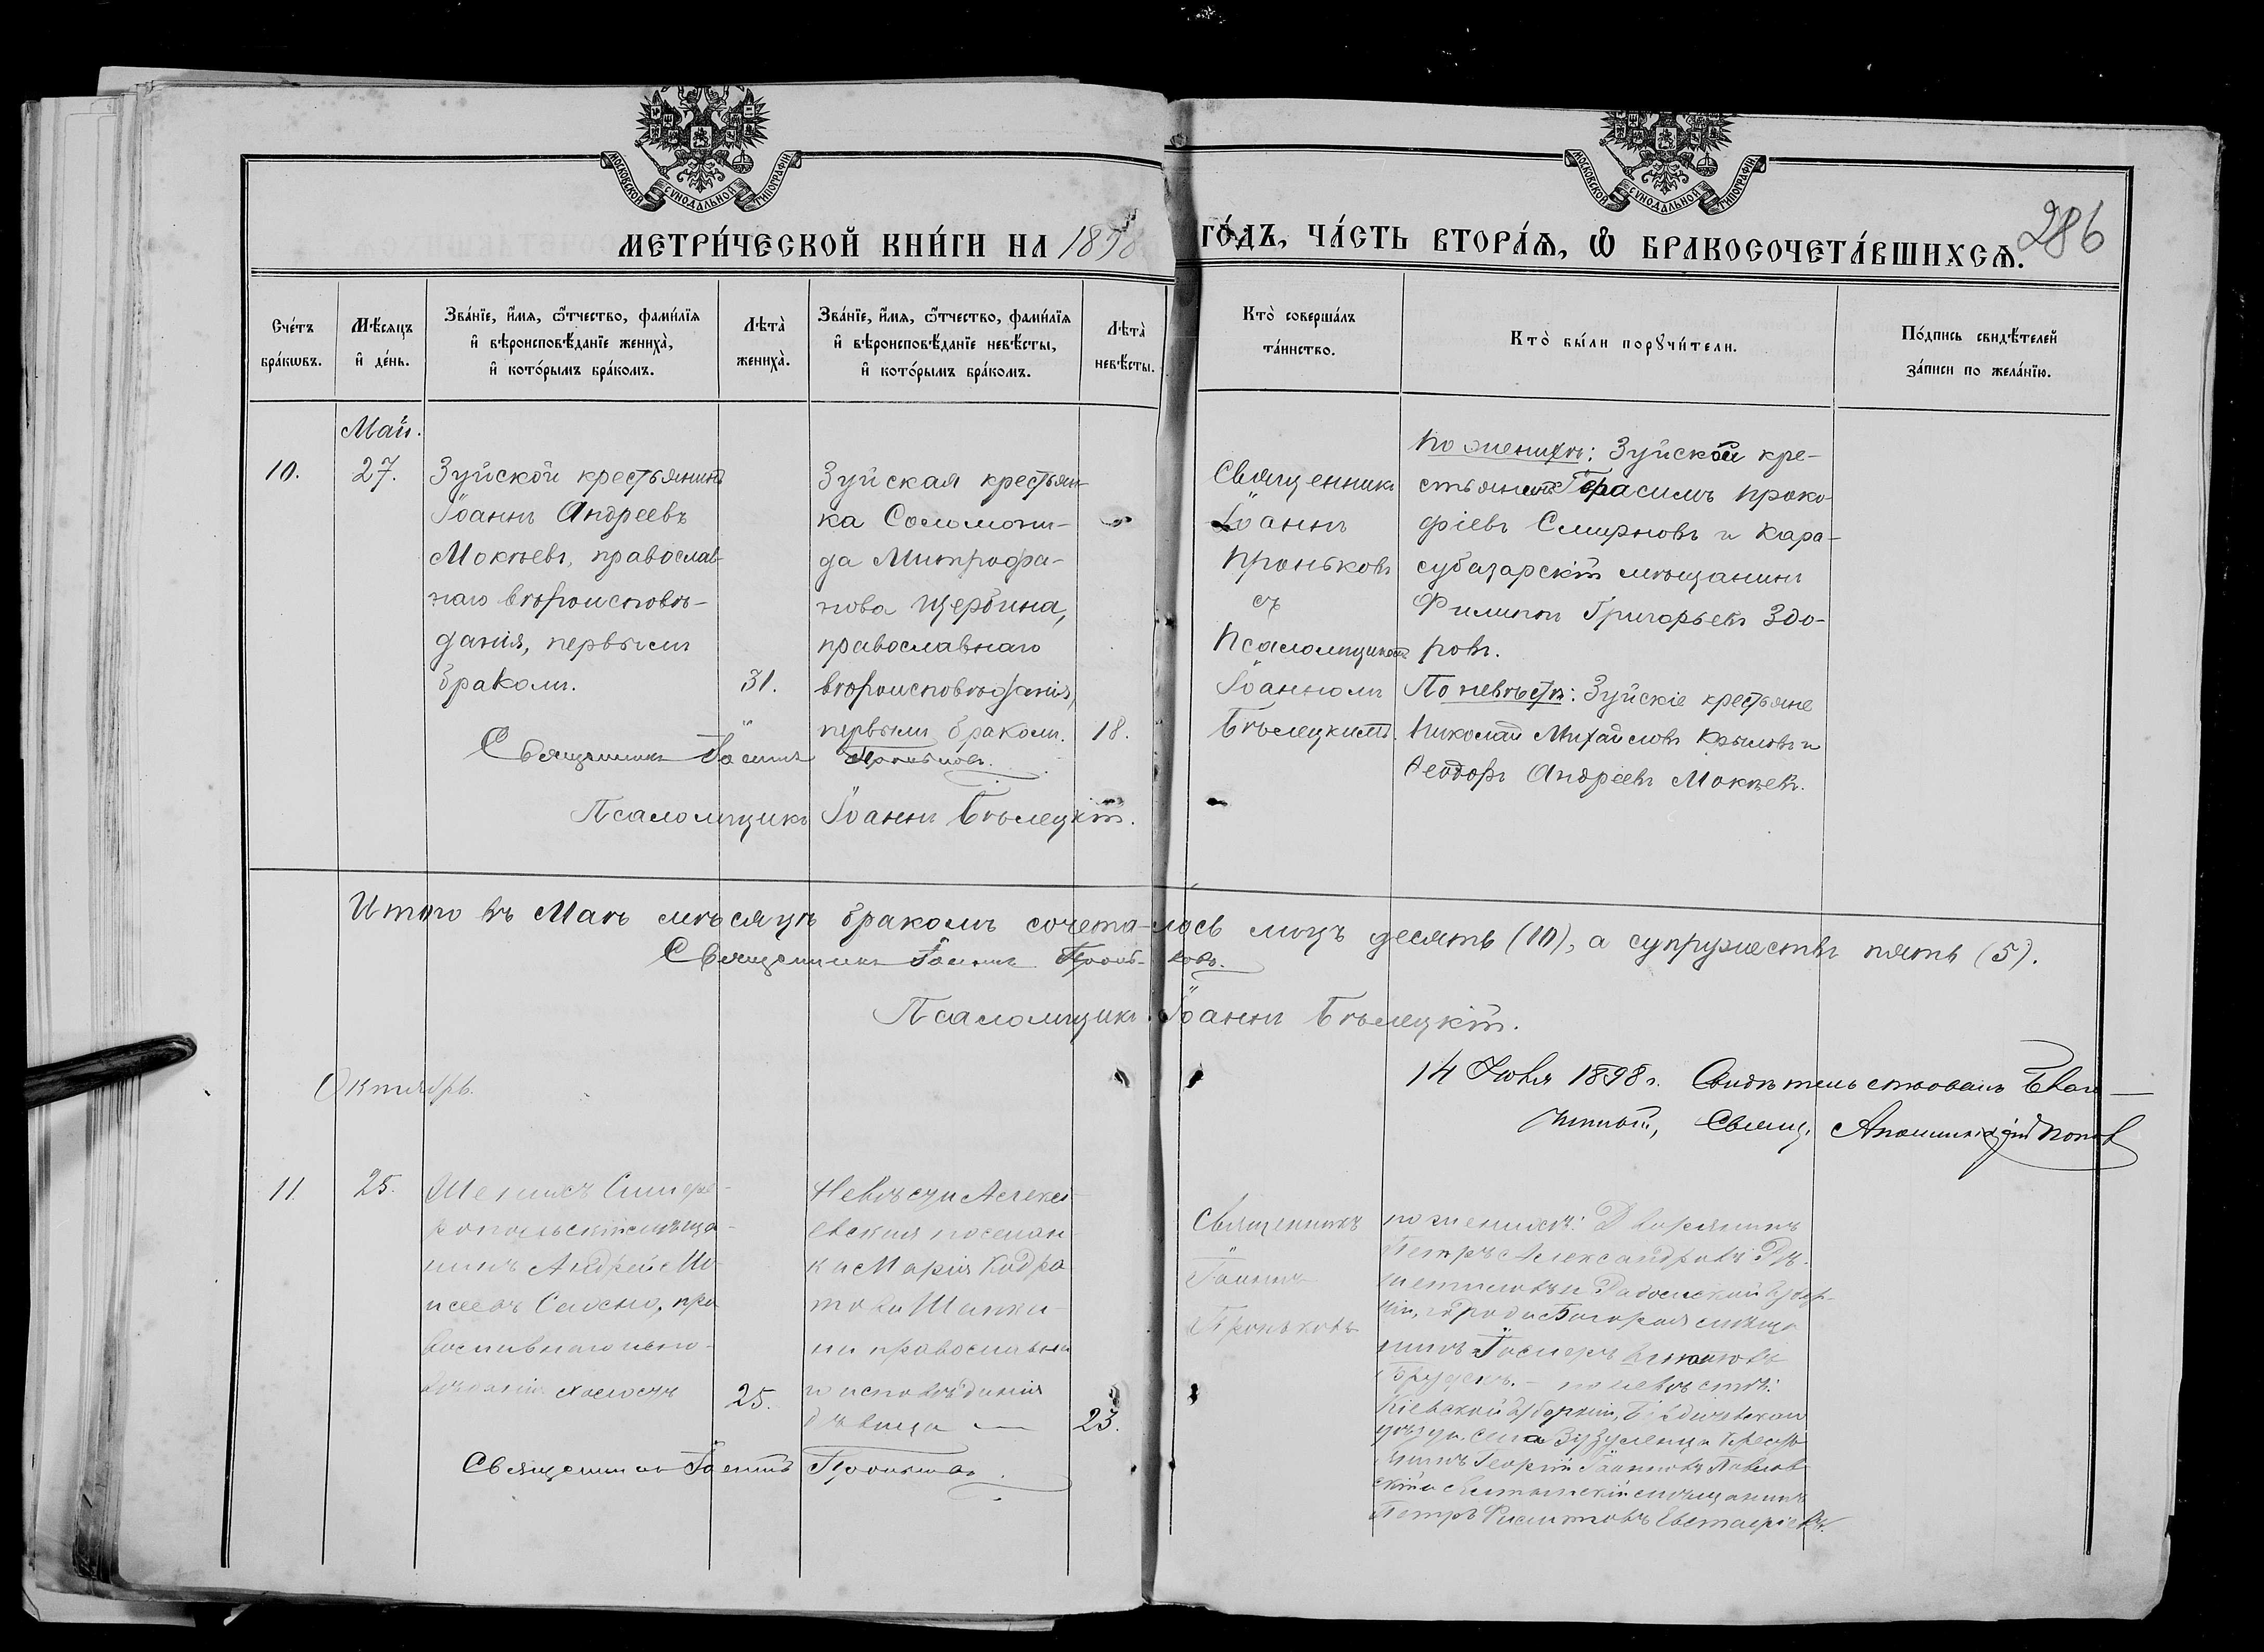 МОСКОВСКОЙ СѴНОДАЛЬНОЙ ТИПОГРАФІИ
МОСКОВСКОЙ СѴНОДАЛЬНОЙ ТИПОГРАФІИ
МЕТРИ́ЧЕСКОЙ КНИ́ГИ НА 1898 ГО́ДЪ, ЧА́СТЬ ВТОРА́Ѧ, Ѿ БРАКОСОЧЕТА́ВШИХСѦ.
286
Сче́тъ бра́кѡвъ.
Мѣ́сяцъ и҆ де́нь.
Зва́нїе, и҆́мя, ѻ҆́тчество, фами́лїя
и҆ вѣроисповѣ́данїе жениха̀,
и҆ кото́рымъ бра́комъ.
Лѣта̀ жениха̀.
Зва́нїе, и҆́мя, ѻ҆́тчество, фами́лїя
и҆ вѣроисповѣ́данїе невѣ́сты,
и҆ кото́рымъ бра́комъ.
Лѣта̀ невѣ́сты.
Кто̀ соверша́лъ
та́инство.
Кто̀ бы́ли порꙋчи́тели.
По́дпись свидѣ́телей
за́писи по жела́нїю.
Май.
10.
27.
Зуйской крестьянинъ
Іоаннъ Андреевъ
Мокѣевъ, православ-
наго вѣроисповѣ-
данія, первымъ
бракомъ.
31.
Зуйская крестьян-
ка Соломони-
да Митрофа-
нова Щербина,
православнаго
вѣроисповѣданія,
первымъ бракомъ.
18.
Священникъ
Іоаннъ
Проньковъ
съ
Псаломщикомъ
Іоанномъ
Бѣлецкимъ.
По женихѣ: Зуйской кре-
стьянинъ Герасимъ Проко-
фіевъ Смирновъ и Кара-
субазарскій мѣщанинъ
Филиппъ Григорьевъ Здо-
ровъ.
По невѣстѣ: Зуйскіе крестьяне
Николай Михайловъ Крыловъ и
Ѳеодоръ Андреевъ Мокѣевъ.
Священникъ Іоаннъ Проньковъ.
Псаломщикъ Іоаннъ Бѣлецкій.
Итого въ Маѣ мѣсяцѣ бракомъ сочета-лось лицъ десять (10), а супружествъ пять (5).
Священникъ Іоаннъ Проньковъ.
Псаломщикъ Іоаннъ Бѣлецкій.
14 Іюля 1898 г. Свидѣтельствовалъ Благо-
чинный, Свящ. Попов
Октябрь.
11.
25.
Женихъ Симфе-
ропольскій мѣща-
нинъ Андрей Мо-
исеевъ про
вославнаго испо-
вѣданія холостъ
25.
Невѣста Алексѣ-
евская поселян-
ка Марія Кодра
това
на православна
го исповѣданія
дѣвица —
23.
Священникъ
Іоаннъ
Проньковъ
по женихѣ: Дворянинъ
Петръ Александровъ
и Радомской Губер-
ніи, города мѣща
нинъ
— по невѣстѣ:
Кіевской Губерніи, Бердичевскаго
уѣзда, села кресть
янинъ Георгій Іоанновъ Павлов-
скій и мѣщанинъ
Петръ Филиповъ
Священникъ Іоаннъ Проньковъ.